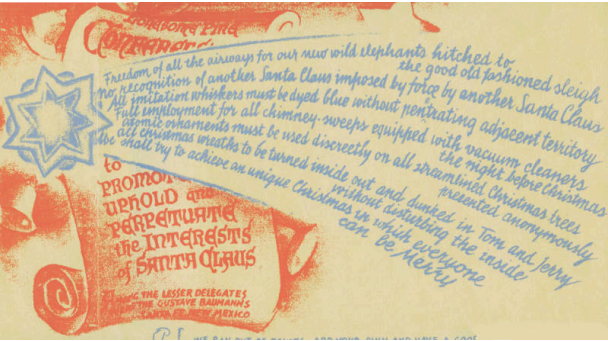 Freedom of all the airways for our new wild elephants hitched to
the good old fashioned sleigh
no recognition of another Santa Claus imposed by force by another Santa Claus
All imitation whiskers must be dyed blue without pentrating adjacent territory
Full employment for all chimney-sweeps equipped with vacuum cleaners
the night before Christmas
atomic ornaments must be used discreetly on all streamlined Christmas trees
presented anonymously
all christmas wreaths to be turned inside out and dunked in Tom and Jerry
without disturbing the inside
We shall try to achieve an unique Christmas in which everyone
can be Merry
to
PROMOT
UPHOLD and
PERPETUATE
the INTERESTS
of SANTA CLAUS
AMONG THE LESSER DELEGATES
WERE THE GUSTAVE BAUMANNS
SANTA FE NEW MEXICO
WE RAN OUT OF POINTS ADD YOUR OWN AND HAVE A GOOD